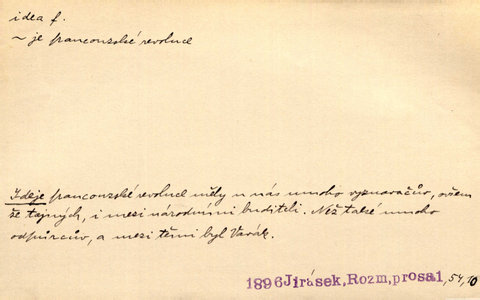 idea f.
~ je francouzské revoluce
Ideje francouzské revoluce měly u nás mnoho vyznavačův, ovšem
že tajných, i mezi národními buditeli. Než také mnoho
odpůrcův, a mezi těmi byl Vavák.
1896 Jirásek, Rozm, prosa1, 54, 10